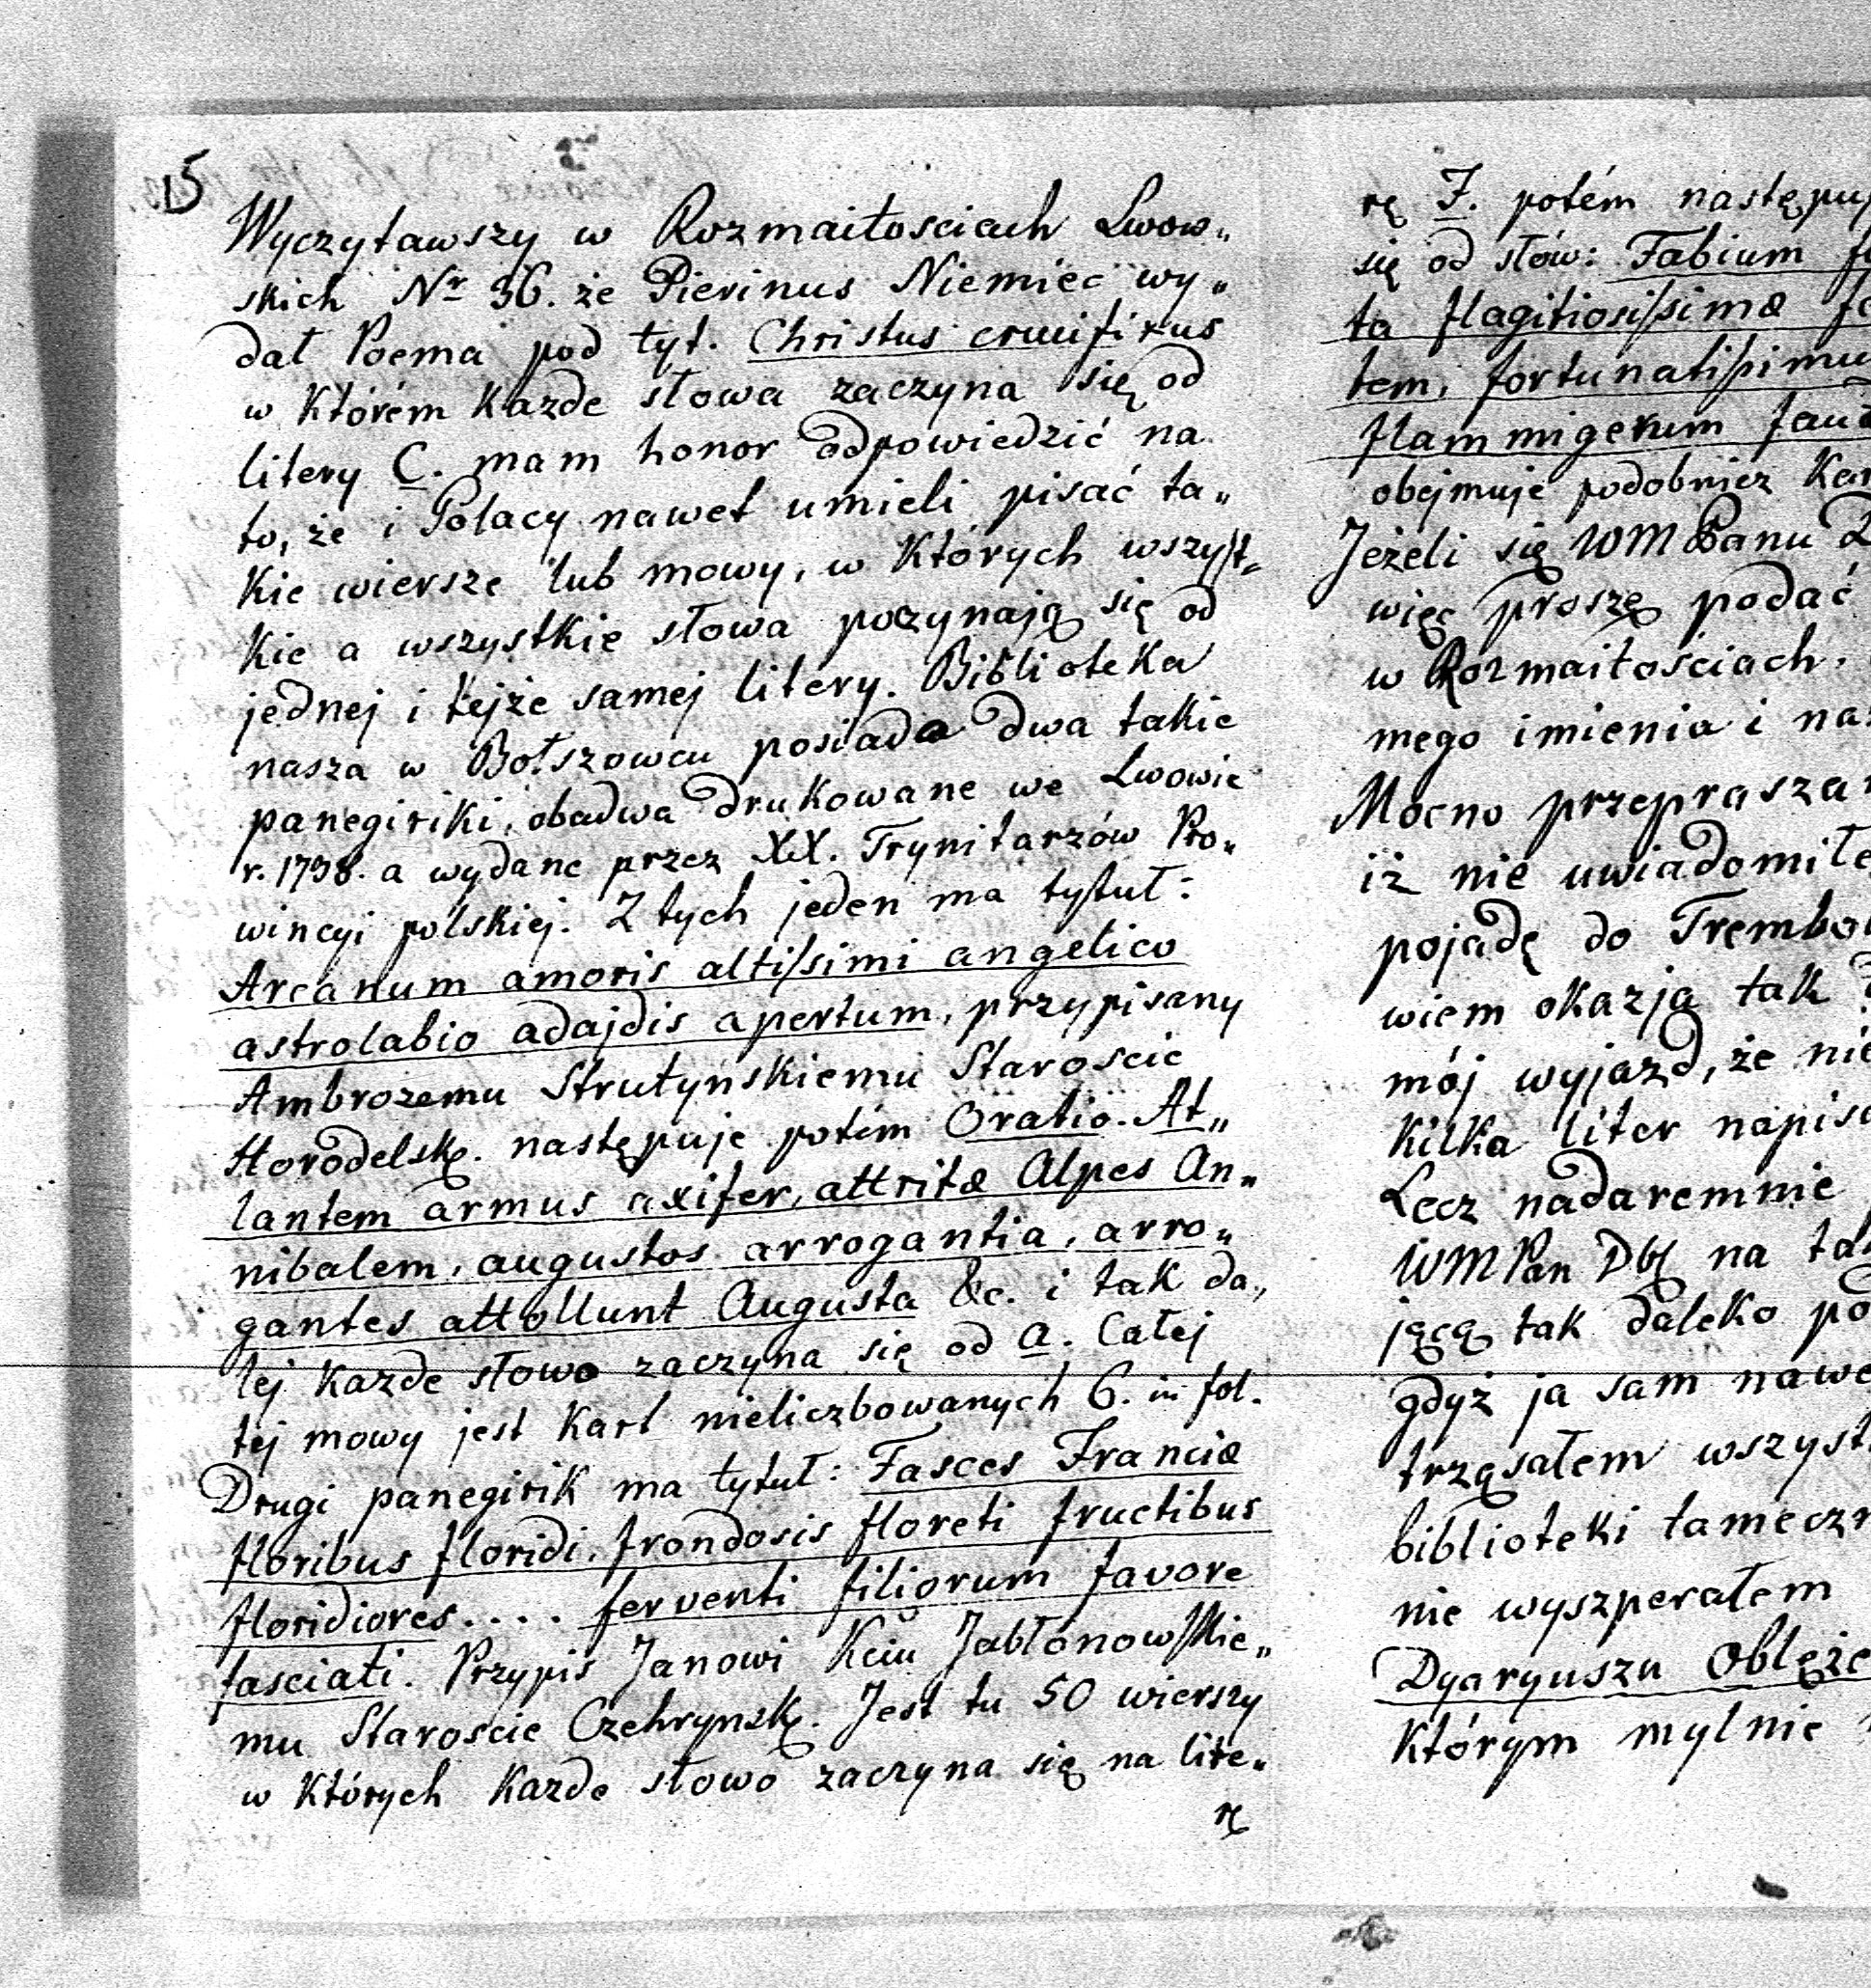 15
Wyczytawszy w Rozmaitościach Lwow„
skich Nr 36. że Pierinus Niemiec wy„
dał Poema pod tyt. Christus crucifixus
w którém każde słowa zaczyna się od
litery C. mam honor odpowiedzić na
to, że i Polacy nawet umieli pisać ta„
kie wiersze lub mowy, w których wszyst„
kie a wszystkie słowa poczynają się od
jednej i tejże samej litery. Biblioteka
nasza w Bołszowcu posiada dwa takie
panegiriki, obadwa drukowane we Lwowie
r. 1738. a wydane przez XX. Trynitarzów Pro„
wincyi polskiej. Z tych jeden ma tytuł:
Arcanum amoris altissimi angelico
astrolabio adajdis apertum, przypisany
Ambrożemu Strutyńskiemu Staroście
Horodelsk. następuje potém Oratio. At„
lantem armus axifer, attritæ Alpes An„
nibalem, augustos arrogantia, arro„
gantes attollunt Augusta &c. i tak da„
lej każde słowo zaczyna się od a. Całej
tej mowy jest kart nieliczbowanych 6. in fol.
Drugi panegirik ma tytuł: Fasces Franciæ
floribus floridi, frondosis floreti fructibus
floridiores.... ferventi filiorum favore
fasciati. Przypis Janowi Kciu Jabłonowskie„
mu Staroście Czehryńsk. Jest tu 50 wierszy
w których każde słowo zaczyna się na lite„
rę
rę F. potém następuj
się od słów: Fabium
ta flagitiosissimæ
tem, fortunatissimu
flammigerum
obejmuje podobnież
Jeżeli się WMPanu
więc proszę podać
w Rozmaitościach.
mego imienia i na
Mocno przeprasza
iż nie uwiadomiłe
pojadę do Trembo
wiem okazją tak
mój wyjazd, że nie
kilka liter napisa
Lecz nadaremnie
WMPan Dbł na
jącą tak daleko po
gdyż ja sam nawe
trząsałem wszyst
biblioteki tameczn
nie wyszperałem
Dyaryuszu Oblęże
którym mylnie